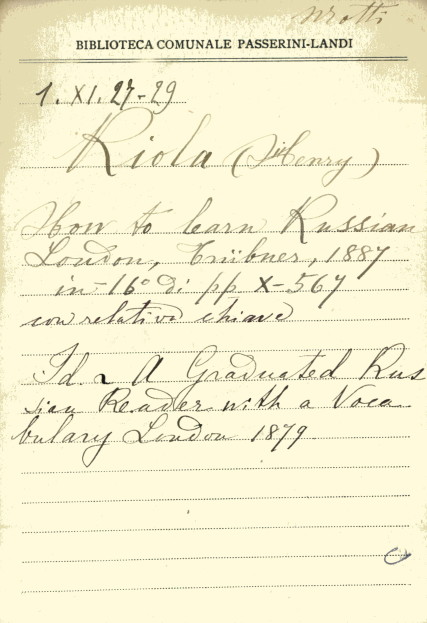 Mrotti
BIBLIOTECA COMUNALE PASSERINI-LANDI
1. XI. 27-29
Riola (Henry)
How to learn Russian
London, Trübner, 1887
in-16° di pp X-567
con relativa chiave
Id. A Graduated Rus
sian Reader with a Voca
bulary London 1879